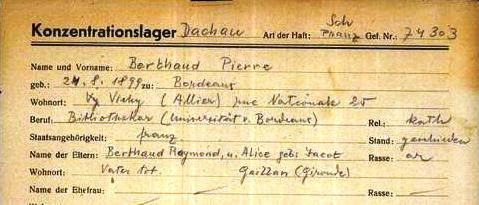 Konzentrationslager Dachau Art der Haft: Sch Franz Gef. Nr.: 74303
Name und Vorname: Berthaud Pierre
geb.: 24.8.1899 zu: Bordeaux
Wohnort: Vichy (Allier) rue Nationale 25
Beruf: Bibliothekar (Universität v. Bordeaux) Rel.: kath
Staatsangehörigkeit: franz Stand: geschieden
Name der Eltern: Berthaud Raymond, u. Alice geb. Jacot Rasse: ar
Wohnort: Vater tot. Gaillan (Gironde)
Name der Ehefrau: — Rasse: —